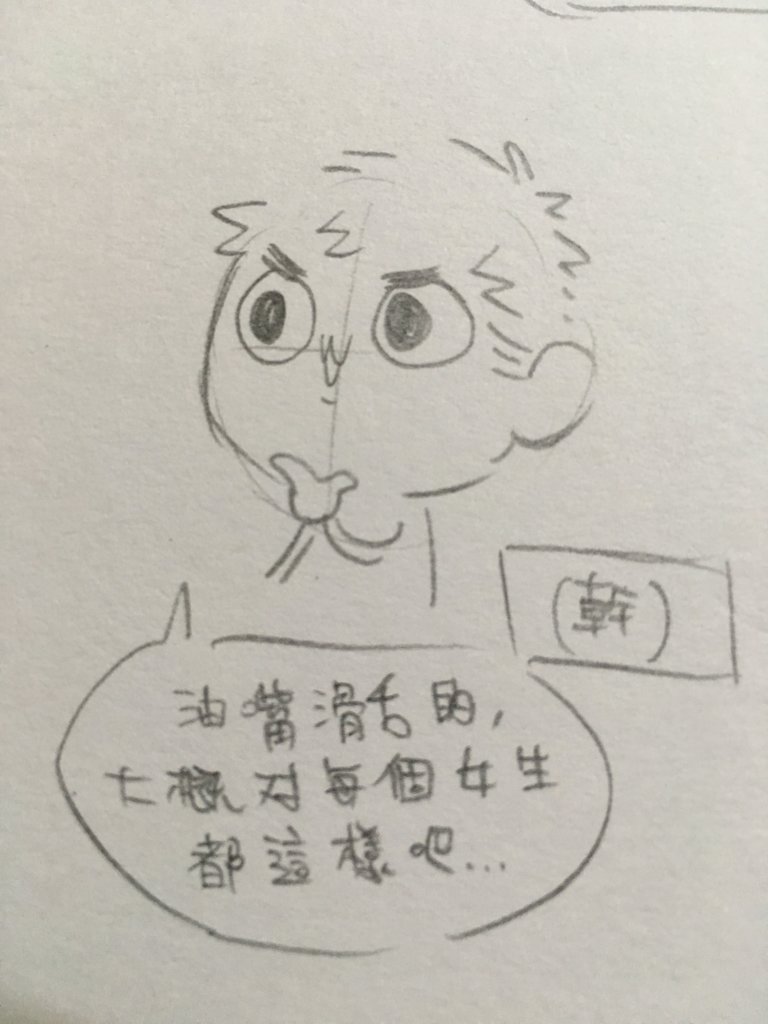 (幹)
油嘴滑舌的,
大概对每個女生
都這樣吧...